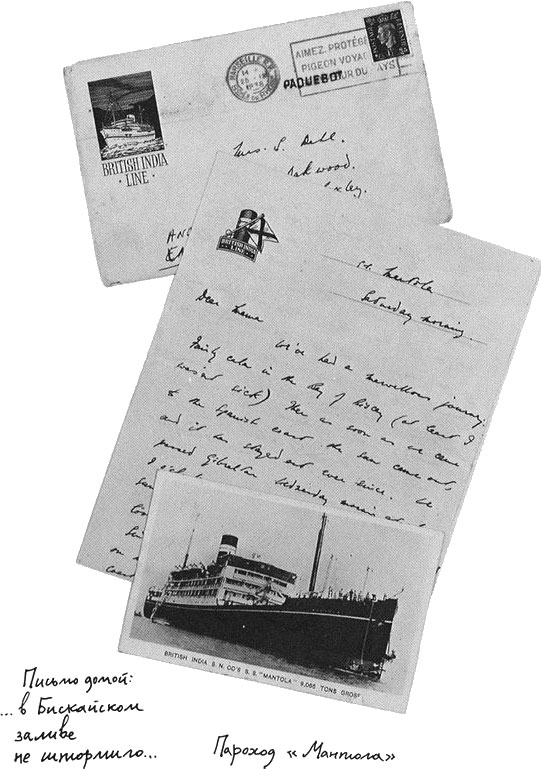 AIMEZ. PROTÉGEZ
PIGEON VOYAG
PAQUEBOT
JOUR DU PAYS
MARSEILLE
BRITISH INDIA
· LINE ·
Mrs. S. Dahl.
Oakwood.
BRITISH INDIA
LINE
s.s. Mantola
Saturday morning.
Dear Mama
We've had a marvellous journey.
Fairly calm in the Bay of Biscay (at least I
wasn't sick) Then as soon as we came
to the Spanish coast the sun came out
and it has stayed out ever since. We
passed Gibraltar Wednesday morning at
BRITISH INDIA S. N. CO'S S. S. "MANTOLA" 9,065 TONS GROSS
Письмо домой:
...в Бискайском
заливе
не штормило...
Пароход «Мантола»